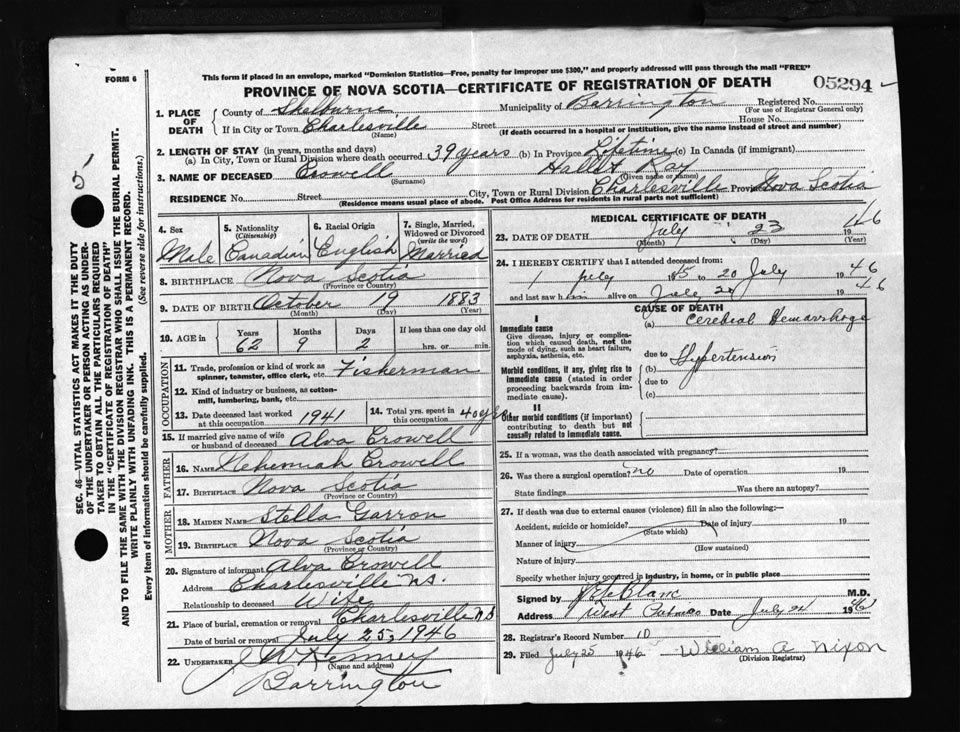 FORM 6
This form if placed in an envelope, marked "Dominion Statistics—Free, penalty for improper use $300," and properly addressed will pass through the mail "FREE"
PROVINCE OF NOVA SCOTIA—CERTIFICATE OF REGISTRATION OF DEATH
05294
5
SEC. 46—VITAL STATISTICS ACT MAKES IT THE DUTY
OF THE UNDERTAKER OR PERSON ACTING AS UNDER-
TAKER TO OBTAIN ALL THE PARTICULARS REQUIRED
IN THE "CERTIFICATE OF REGISTRATION OF DEATH"
AND TO FILE THE SAME WITH THE DIVISION REGISTRAR WHO SHALL ISSUE THE BURIAL PERMIT.
WRITE PLAINLY WITH UNFADING INK. THIS IS A PERMANENT RECORD.
Every item of information should be carefully supplied. (See reverse side for instructions.)
1. PLACE OF DEATH
County of Shelburne Municipality of Barrington Registered No.
(For use of Registrar General only)
If in City or Town Charlesville Street House No.
(Name) (If death occurred in a hospital or institution, give the name instead of street and number)
2. LENGTH OF STAY (in years, months and days)
(a) In City, Town or Rural Division where death occurred 39 years (b) In Province Lifetime (c) In Canada (if immigrant)
3. NAME OF DECEASED Crowell Ray
(Surname) (Given name or names)
RESIDENCE No. Street City, Town or Rural Division Charlesville Province Nova Scotia
(Residence means usual place of abode. Post Office Address for residents in rural parts not sufficient)
4. Sex
Male
5. Nationality
(Citizenship)
Canadian
6. Racial Origin
English
7. Single, Married, Widowed or Divorced
(write the word)
Married
8. BIRTHPLACE Nova Scotia
(Province or Country)
9. DATE OF BIRTH October 19 1883
(Month) (Day) (Year)
10. AGE in
Years Months Days If less than one day old
62 9 2 hrs. or min.
OCCUPATION
11. Trade, profession or kind of work as Fisherman
spinner, teamster, office clerk, etc.
12. Kind of industry or business, as cotton-
mill, lumbering, bank, etc.
13. Date deceased last worked
at this occupation 1941
14. Total yrs. spent in
this occupation 40 yrs
15. If married give name of wife
or husband of deceased Alva Crowell
FATHER
16. Name Nehemiah Crowell
17. Birthplace Nova Scotia
(Province or Country)
MOTHER
18. Maiden Name Stella Garron
19. Birthplace Nova Scotia
(Province or Country)
20. Signature of informant Alva Crowell
Address Charlesville N.S.
Relationship to deceased Wife
21. Place of burial, cremation or removal Charlesville N.S
Date of burial or removal July 25, 1946
22. UNDERTAKER
(Name and address)
Barrington
MEDICAL CERTIFICATE OF DEATH
23. DATE OF DEATH July 23 1946
(Month) (Day) (Year)
24. I HEREBY CERTIFY that I attended deceased from:
1 July 45 to 20 July 1946
and last saw him alive on July 20 1946
CAUSE OF DEATH
I
Immediate cause
Give disease, injury or complica-
tion which caused death, not the
mode of dying, such as heart failure,
asphyxia, asthenia, etc.
(a) Cerebral Hemorrhage
due to
Morbid conditions, if any, giving rise to
immediate cause (stated in order
proceeding backwards from im-
mediate cause).
(b) Hypertension
due to
(c)
II
Other morbid conditions (if important)
contributing to death but not
causally related to immediate cause.
25. If a woman, was the death associated with pregnancy?
26. Was there a surgical operation? no Date of operation 19
State findings Was there an autopsy?
27. If death was due to external causes (violence) fill in also the following:—
Accident, suicide or homicide? Date of injury 19
(State which)
Manner of injury
(How sustained)
Nature of injury
Specify whether injury occurred in industry, in home, or in public place
Signed by LeBlanc M.D.
Address West Pubnico Date July 24 1946
28. Registrar's Record Number 10
29. Filed July 25 1946 William A Nixon
(Division Registrar)